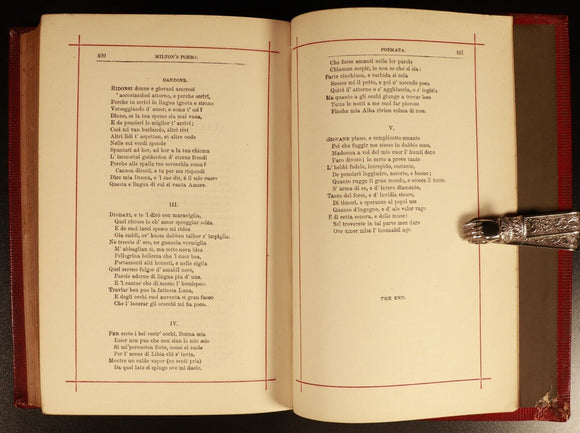 420 MILTON'S POEMS.
CANZONE.
RIDONSI donne e giovani amorosi
M' accostandosi attorno, e perche scrivi,
Perche tu scrivi in lingua ignota e strana
Verseggiando d' amor, e come t' osi?
Dinne, se la tua speme sia mai vana,
E de pensieri lo miglior t' arrivi;
Cosi mi van burlando, altri rivi
Altri lidi t' aspettan, et altre onde
Nelle cui verdi sponde
Spuntati ad hor, ad hor a la tua chioma
L' immortal guiderdon d' eterne frondi
Perche alle spalle tue soverchia soma?
Canzon dirotti, e tu per me rispondi
Dice mia Donna, e 'l suo dir, é il mio cuore
Questa e lingua di cui si vanta Amore.
III.
DIODATI, e te 'l dirò con maraviglia,
Quel ritroso io ch' amor spreggiar soléa
E de suoi lacci spesso mi ridéa
Gia caddi, ov' huom dabben talhor s' impiglia.
Ne treccie d' oro, ne guancia vermiglia
M' abbaglian sì, ma sotto nova idea
Pellegrina bellezza che 'l cuor bea,
Portamenti alti honesti, e nelle ciglia
Quel sereno fulgor d' amabil nero,
Parole adorne di lingua piu d' una,
E 'l cantar che di mezzo l' hemispero
Traviar ben puo la faticosa Luna,
E degli occhi suoi auventa si gran fuoco
Che l' incerar gli orecchi mi fia poco.
IV.
PER certo i bei vostr' occhi, Donna mia
Esser non puo che non sian lo mio sole
Si mi percuoton forte, come ei suole
Per l' arene di Libia chi s' invia,
Mentre un caldo vapor (ne sentì pria)
Da quel lato si spinge ove mi duole,
POEMATA. 421
Che forse amanti nelle lor parole
Chiaman sospir; io non so che si sia:
Parte rinchiusa, e turbida si cela
Scosso mi il petto, e poi n' uscendo poco
Quivi d' attorno o s' agghiaccia, o s' ingiela
Ma quanto a gli occhi giunge a trovar loco
Tutte le notti a me suol far piovose
Finche mia Alba rivien colma di rose.
V.
GIOVANE piano, e semplicetto amante
Poi che fuggir me stesso in dubbio sono,
Madonna a voi del mio cuor l' humil dono
Faro divoto; io certo a prove tante
L' hebbi fedele, intrepido, costante,
De pensieri leggiadro, accorto, e buono;
Quando rugge il gran mondo, e scocca il tuono
S' arma di se, e d' intero diamante,
Tanto del forse, e d' invidia sicuro,
Di timori, e speranze al popol use
Quanto d'ingegno, e d' alto valor vago
E di cetta sonora, e delle muse:
Sol troverete in tal parte men duro
Ove amor mise l' insanabil ago.
THE END.